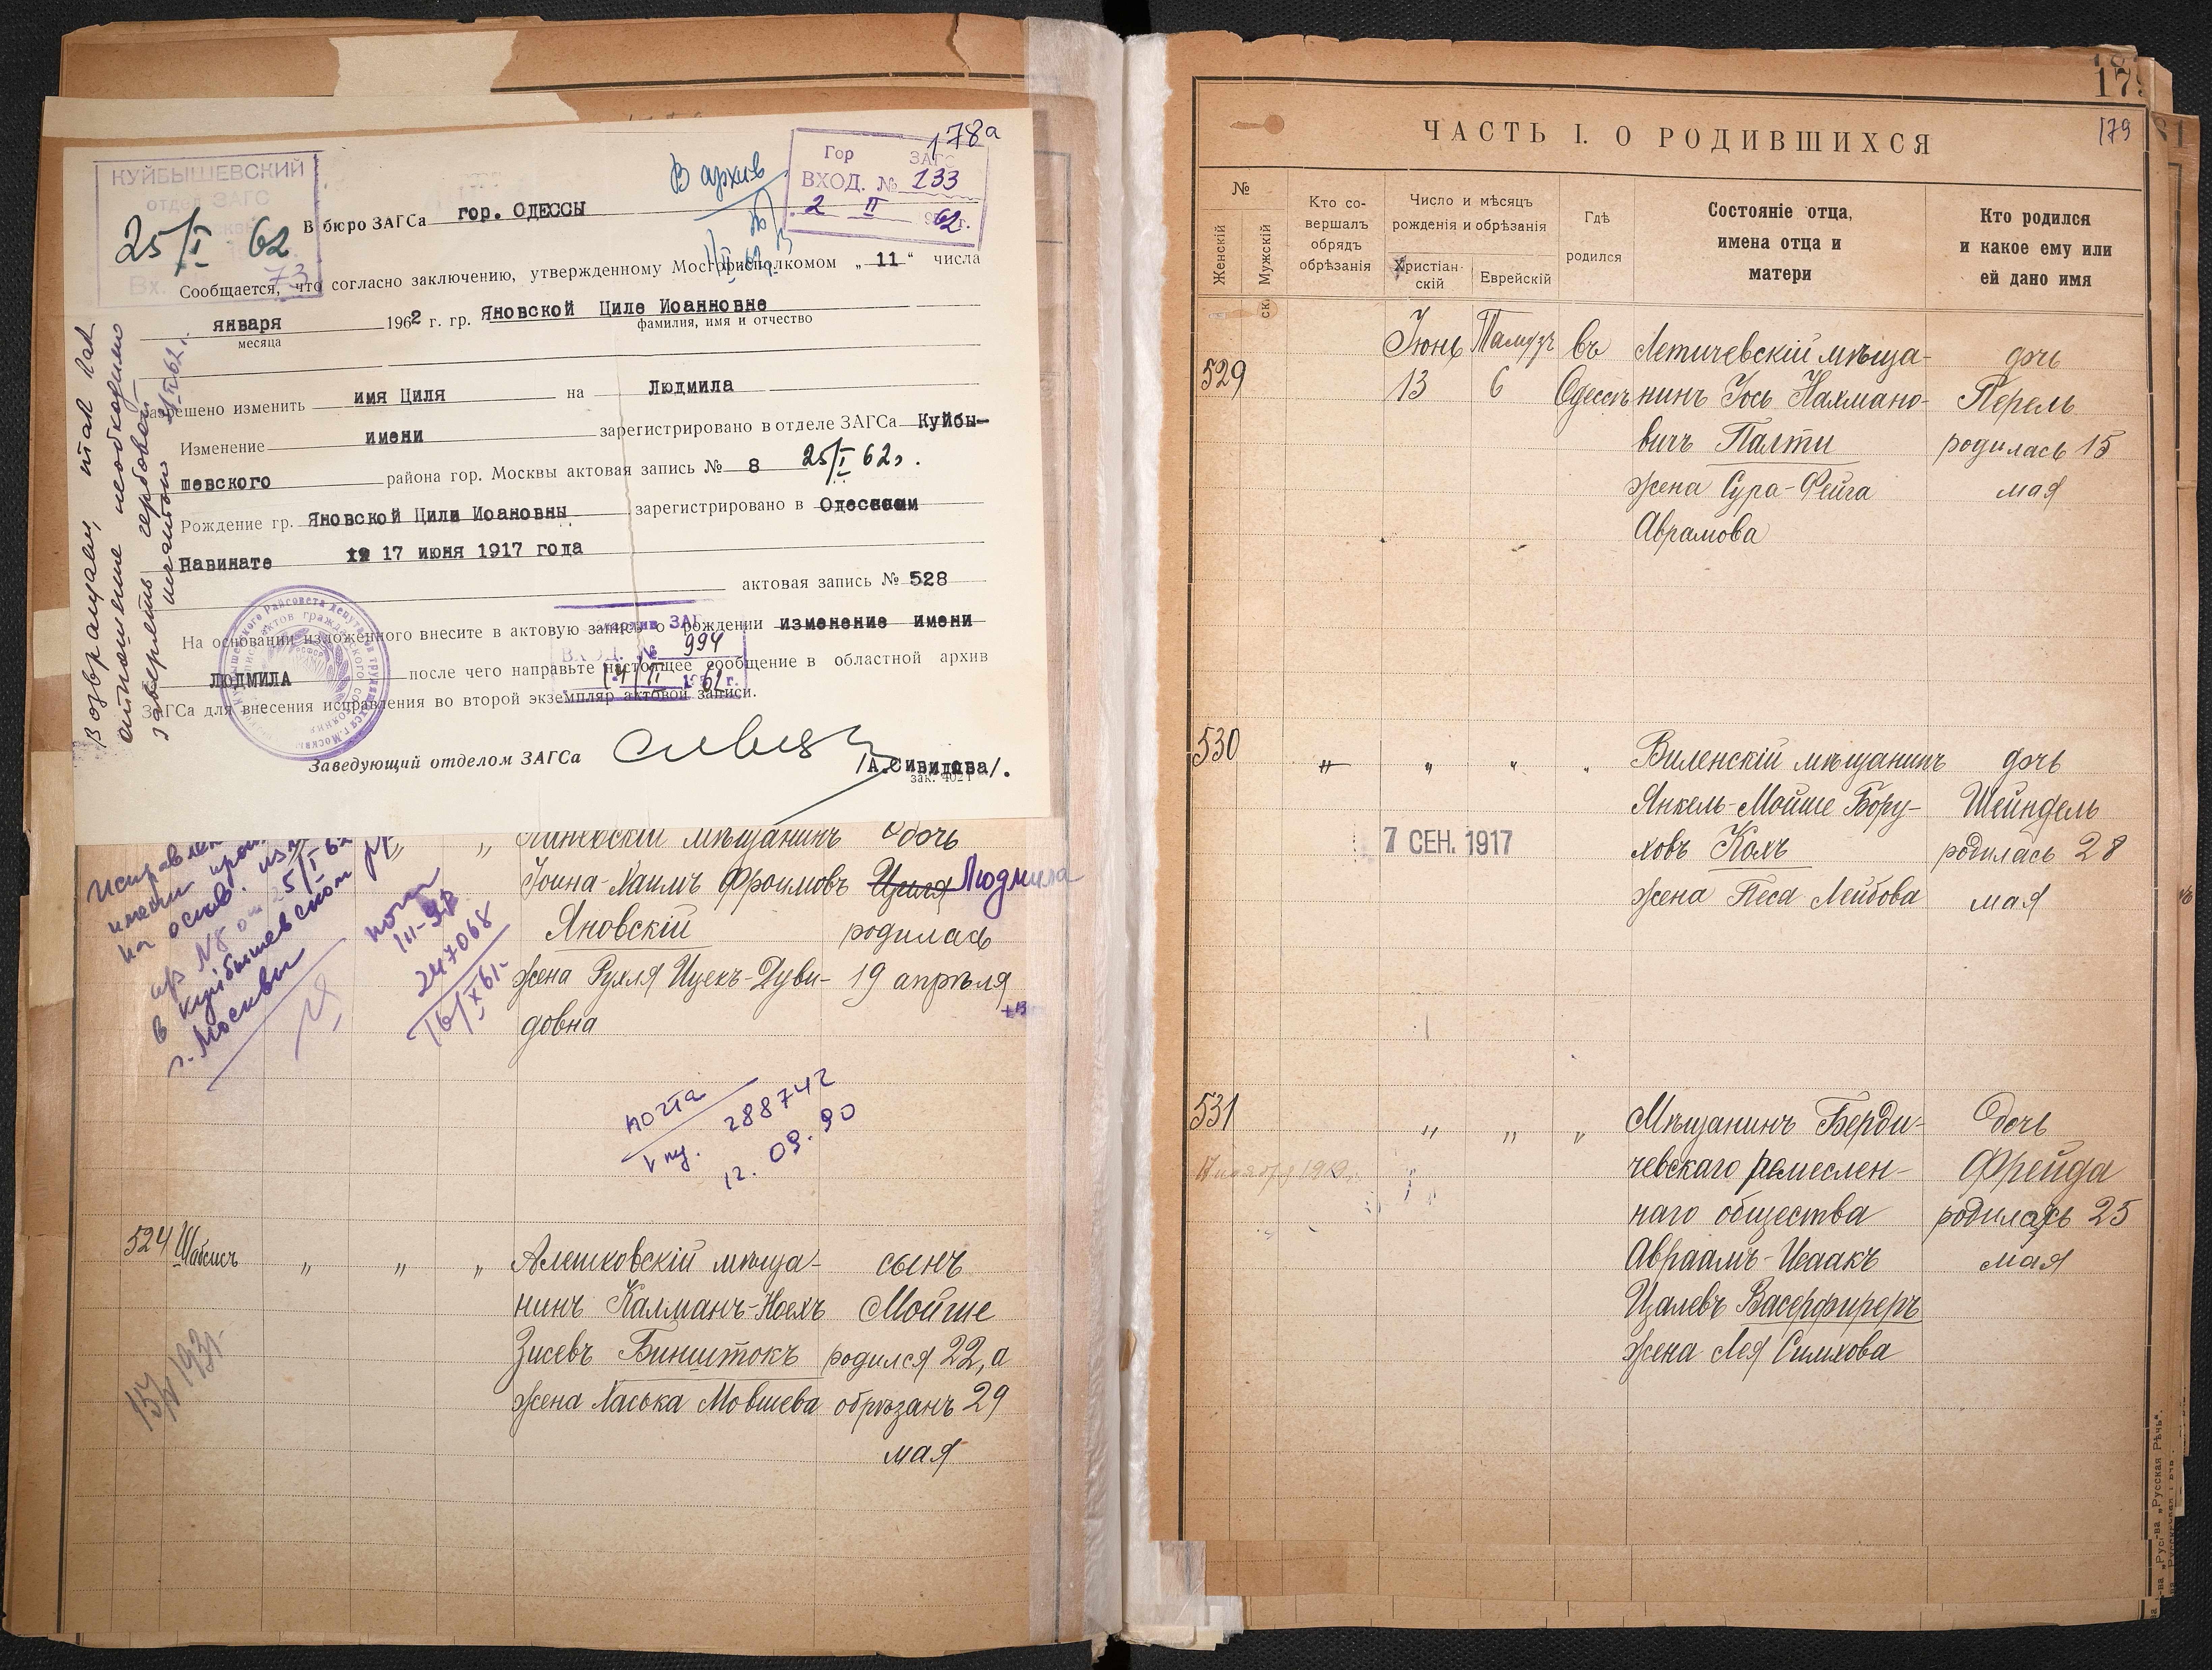 178а
КУЙБЫШЕВСКИЙ
отдел ЗАГС
25/I 62
Вх. 73
В архив
Гор ЗАГС
ВХОД. № 233
2 II 1962 г.
В бюро ЗАГСа гор. ОДЕССЫ
Сообщается, что согласно заключению, утвержденному Мосгорисполкомом „11“ числа
января 1962 г. гр. Яновской Циле Иоанновне
месяца фамилия, имя и отчество
разрешено изменить имя Циля на Людмила
Изменение имени зарегистрировано в отделе ЗАГСа Куйбы-
шевского района гор. Москвы актовая запись № 8 25/I 62г.
Рождение гр. Яновской Цили Иоановны зарегистрировано в Одесском
Равинате 17 июня 1917 года
актовая запись № 528
На основании изложенного внесите в актовую запись о рождении изменение имени
ЛЮДМИЛА после чего направьте настоящее сообщение в областной архив
ЗАГСа для внесения исправления во второй экземпляр актовой записи.
ВХОД. № 994
Заведующий отделом ЗАГСа
/А.Сивидова/.
зак. 4021
Возвращаем, так как
отношение необходимо
заверить гербовой
печатью
мѣщанинъ дочь
Іоина-Хаимъ Фроимовъ Циля Людмила
Яновскій родилась
жена Рухля Ицекъ-Дуви- 19 апрѣля
довна
на основ.
ар №8 от 25/I 62
в Куйбышевском
г. Москвы
III-ЯР
247068
16/XI 61г.
почта
288742
12.09.90
524 Шабсисъ „ „ „ Алешковскій мѣща- сынъ
нинъ Калманъ-Ноехъ Мойше
Зисевъ Бинштокъ родился 22, а
жена Хаська Мовшева обрѣзанъ 29
мая
179
179
ЧАСТЬ I. О РОДИВШИХСЯ
№
Женскій
Мужскій
Кто со-
вершалъ
обрядъ
обрѣзанія
Число и мѣсяцъ
рожденія и обрѣзанія
Христіан-
скій
Еврейскій
Гдѣ
родился
Состояніе отца,
имена отца и
матери
Кто родился
и какое ему или
ей дано имя
Іюнь Тамузъ въ Летичевскій мѣща- дочь
529 13 6 Одессѣ нинъ Іось Нахмано- Перель
вичъ Палти родилась 15
жена Сура-Фейга мая
Аврамова
530 „ „ „ „ Виленскій мѣщанинъ дочь
Янкель-Мойше Бору- Шейндель
7 СЕН. 1917 ховъ Колъ родилась 28
жена Песа Лейбова мая
531 „ „ „ Мѣщанинъ Берди- дочь
чевскаго ремеслен- Фрейда
наго общества родилась 25
Авраамъ-Исаакъ мая
Цалевъ Васерфиреръ
жена Лея Симхова
„Русская Рѣчь“.